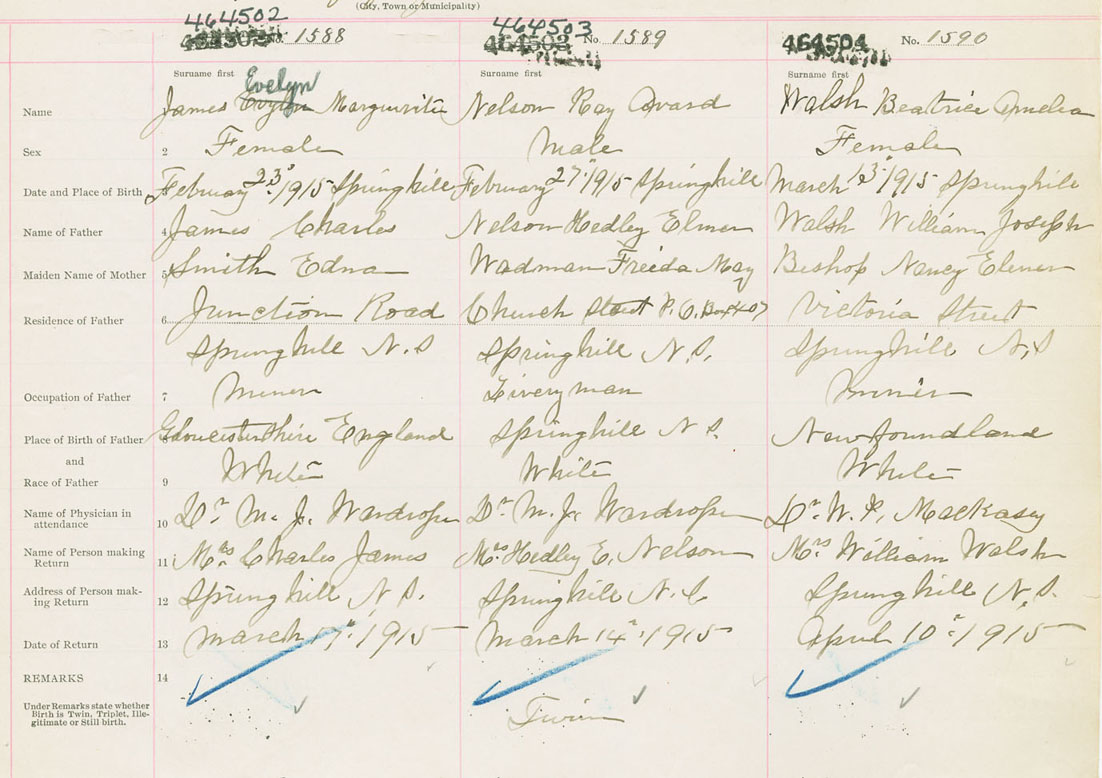 (City, Town or Municipality)
464502 No. 1588 464503 No. 1589 464504 No. 1590
Surname first Evelyn Surname first Surname first
Name James Marguerite Nelson Ray Avard Walsh Beatrice Amelia
Sex 2 Female Male Female
Date and Place of Birth February 23rd 1915 Springhill February 27th 1915 Springhill March 13th 1915 Springhill
Name of Father 4 James Charles Nelson Hedley Elmer Walsh William Joseph
Maiden Name of Mother 5 Smith Edna Wadman Freeda May Bishop Nancy
Residence of Father 6 Junction Road Church Street P.O. Box 407 Victoria Street
Springhill N.S Springhill N.S. Springhill N.S
Occupation of Father 7 Miner Liveryman Miner
Place of Birth of Father 8 Gloucestershire England Springhill N S. Newfoundland
and
Race of Father 9 White White White
Name of Physician in attendance 10 Dr. M. J. Wardrope Dr. M. J. Wardrope Dr. W. P. MacKasey
Name of Person making Return 11 Mrs Charles James Mrs Hedley E. Nelson Mrs William Walsh
Address of Person making Return 12 Springhill N.S. Springhill N.S Springhill N.S.
Date of Return 13 March 1915 March 14th 1915 April 10th 1915
REMARKS 14
Under Remarks state whether
Birth is Twin, Triplet, Ille-
gitimate or Still birth.
Twin